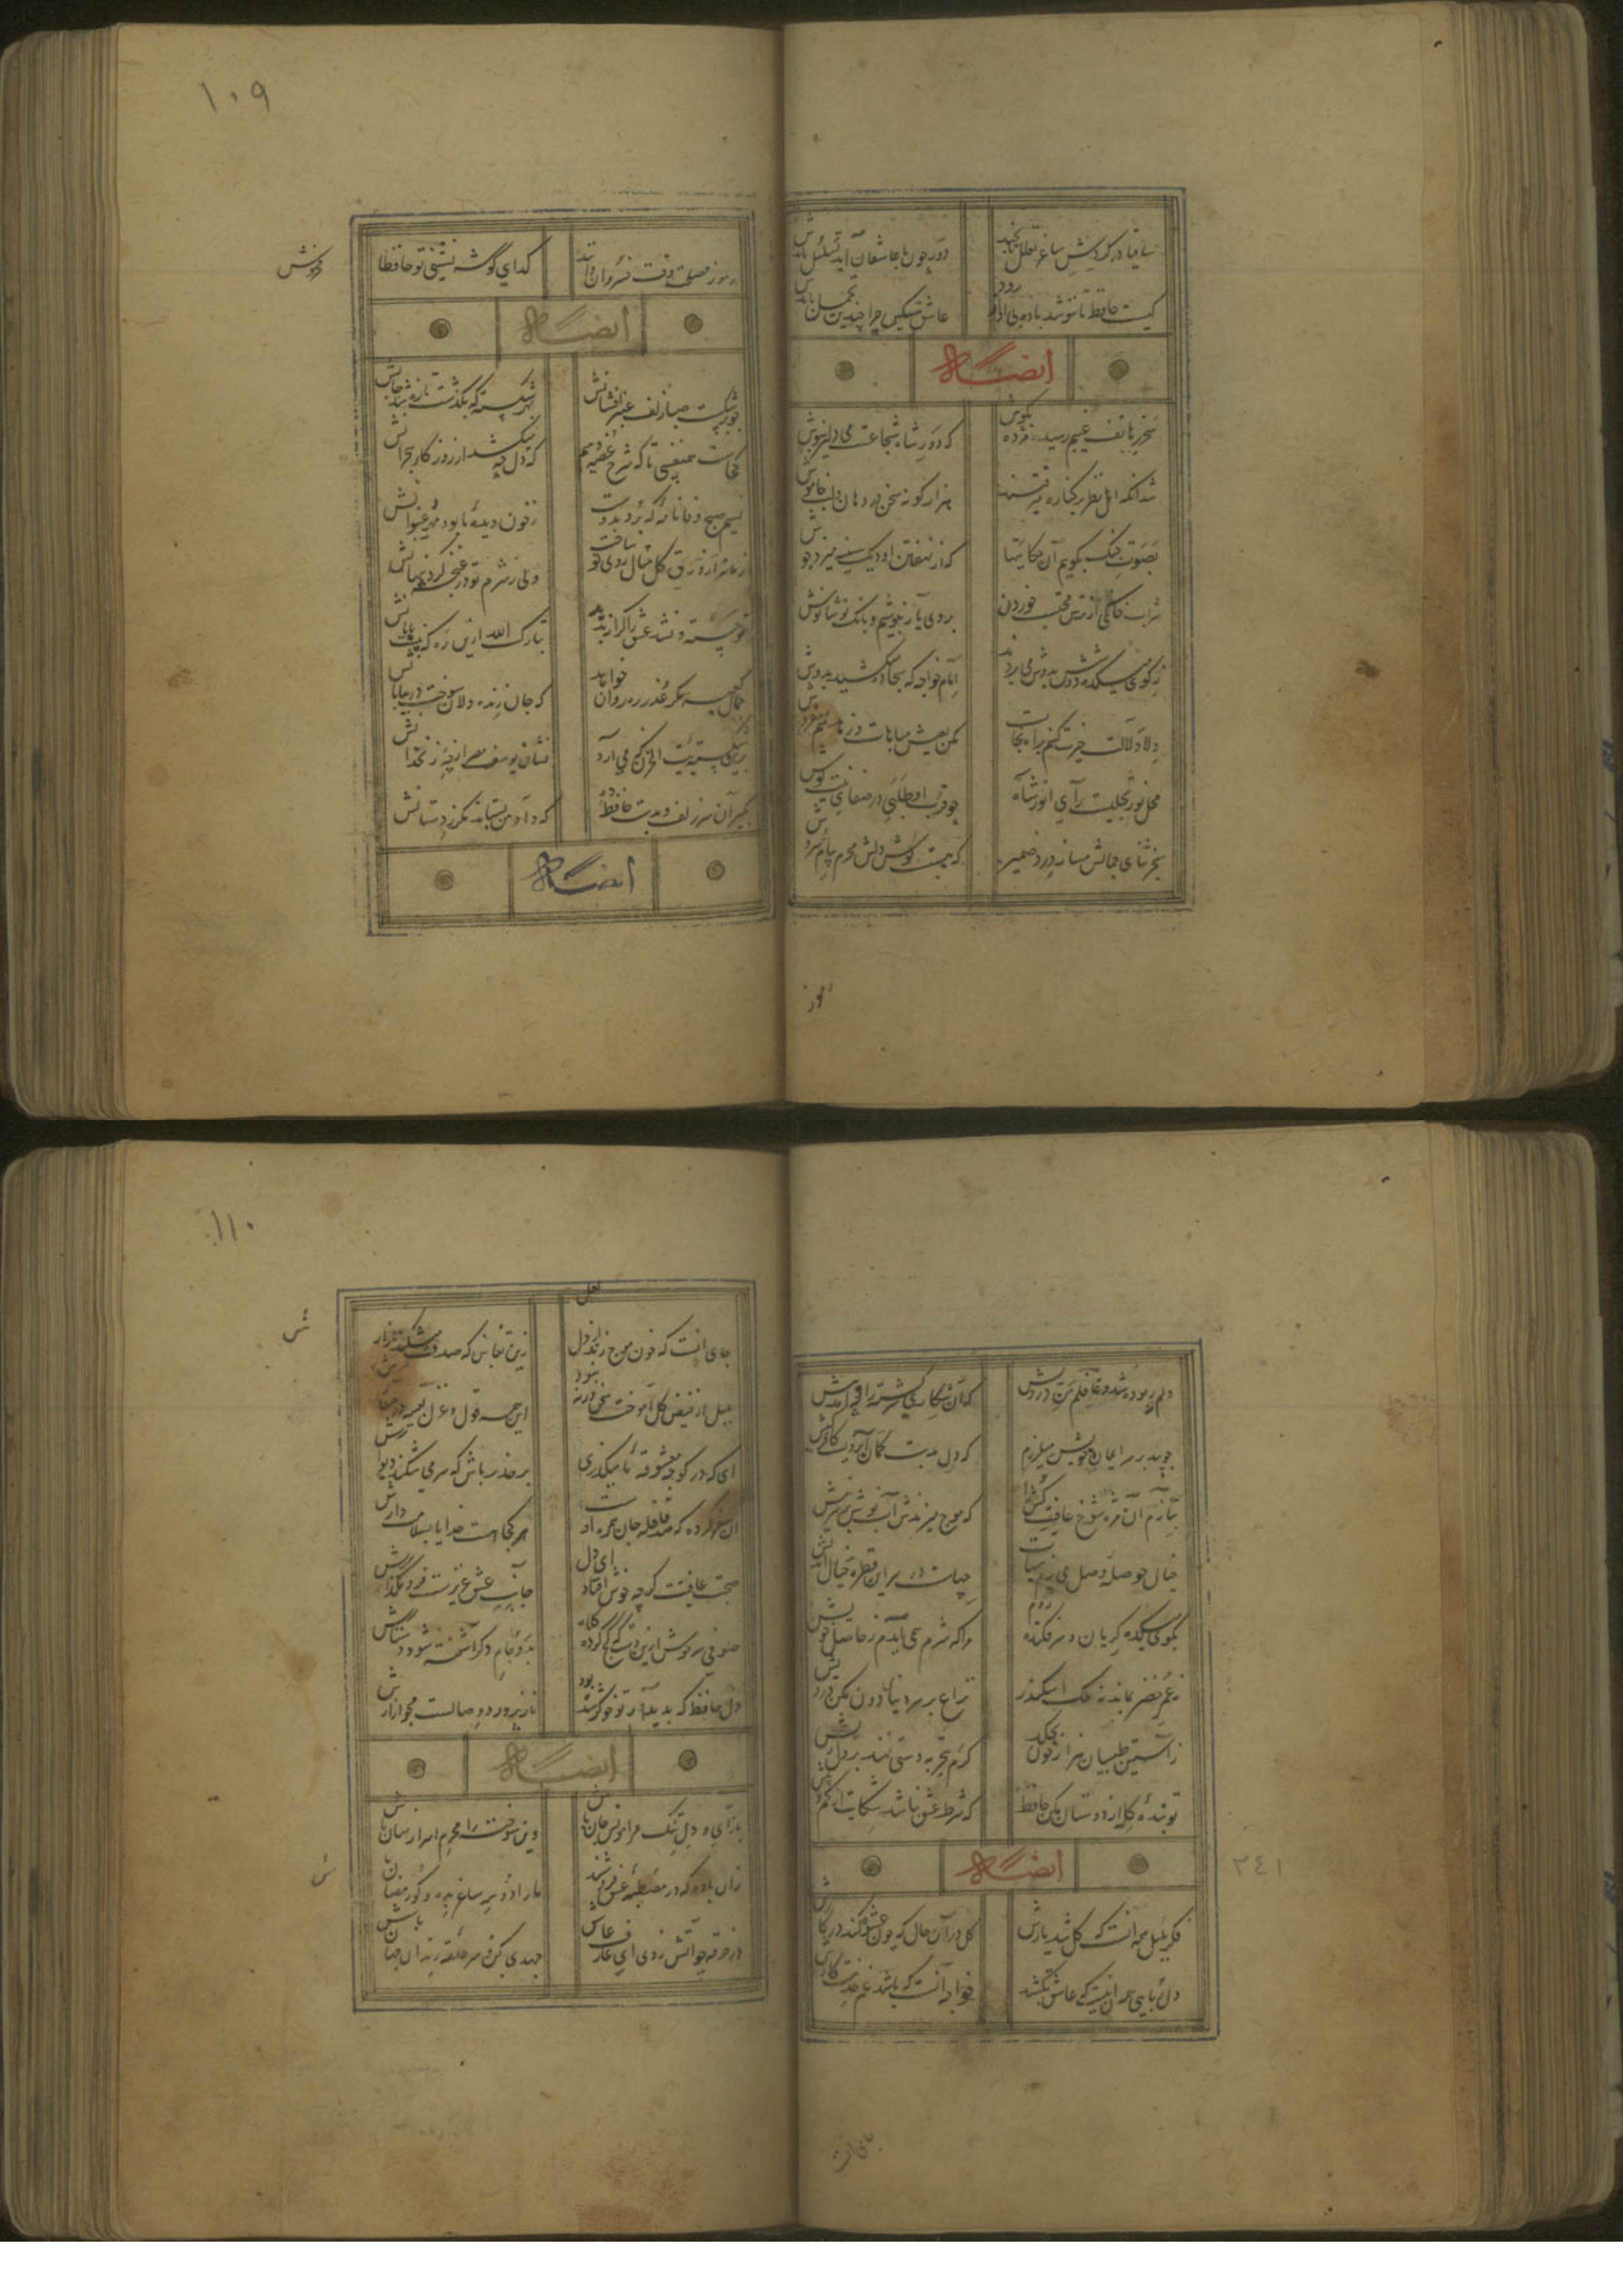 ساقیا در گردش ساغر تعلل تا بچند دور چون با عاشقان آید تسلسل بایدش
کیست حافظ تا ننوشد باده بی آواز رود عاشق مسکین چرا چندین تحمل بایدش
ایضاً له
سحر ز هاتف غیبم رسید مژده بکوش که دور شاه شجاعست می دلیر بنوش
شد آنکه اهل نظر بر کناره میرفتند هزار کونه سخن در دهان و لب خاموش
بصوت چنک بکویم آن حکایتها که از نهفتن او دیک سینه میزد جوش
شراب خانکی از ترس محتسب خوردن بروی یار بنوشیم و بانک نوشانوش
ز کوی میکده دوشش بدوش می بردند امام خواجه که سجاده میکشید بدوش
دلا دلالت خیرت کنم براه نجات مکن بعیش مباهات و زهد هم مفروش
محل نور تجلیست رای انور شاه چو قرب او طلبی در صفای نیت کوش
بجز ثنای جمالش مساز ورد ضمیر که هست کوش دلش محرم پیام سروش
رموز
١٠٩
رموز مصلحت وقت خسروان دانند کدای گوشه نشینی تو حافظا مخروش
ایضاً له
چو بر شکست صبا زلف عنبر افشانش بهر شکسته که بگذشت تازه شد جانش
کجاست همنفسی تا که شرح غصه دهم که دل چه میکشد از روزکار هجرانش
نسیم صبح وفا نامه که برد بدوست ز خون دیده ما بود مهر عنوانش
زمانه از ورق کل مثال روی تو ساخت ولی ز شرم تو در غنچه کرد پنهانش
تو خسته و نشد عشق را کرانه پدید تبارک الله ازین ره که نیست پایانش
جمال کعبه مکر عذر ره روان خواهد که جان زنده دلان سوخت در بیابانش
بدین شکسته بیت الحزن که می آرد نشان یوسف مصر از چه زنخدانش
بگیرم آن سر زلف و بدست حافظ دهم که داد من بستاند مکر ز دستانش
ایضاً له
دلم ربوده شد و غافلم من درویش که آن شکاری کشته را چه آمد پیش
چو بید بر سر ایمان خویش میلرزم که دل بدست کمان ابرویست کافر کیش
بنازم آن مژه شوخ عافیت کش را که موج میزندش آب نوش بر سر نیش
خیال حوصله وصل می پزم هیهات چهاست در سر این قطره خیال اندیش
بکوی میکده کریان و سرفکنده روم مرا که شرم می آیدم ز حاصل خویش
نه عمر خضر بماند نه ملک اسکندر نزاع بر سر دنیا دون مکن درویش
ز آستین طبیبان هزار خون بچکد کرم بتجربه دستی نهند بر دل ریش
تو بنده کله از دوستان مکن حافظ که شرط عشق نباشد شکایت از کم و بیش
ایضاً له
٢٤١
فکر بلبل همه آنست که کل شد یارش کل در آن حال که چون عشوه کند در کارش
دلربایی همه آن نیست که عاشق بکشد خواجه آنست که باشد غم خدمت کارش
جای آنست
١١٠
جای آنست که خون موج زند در دل لعل زین تغابن که صدف میشکند بازارش
بلبل از فیض کل آموخت سخن ورنه نبود این همه قول و غزل تعبیه در منقارش
ای که در کوچه معشوقه ما میکذری بر حذر باش که سر می شکند دیوارش
آن سفر کرده که صد قافله جان همره اوست هر کجا هست خدایا بسلامت دارش
صحبت عافیتت کرچه خوش افتاد ای دل جانب عشق عزیزست فرو مگذارش
صوفی سرخوش ازین دست که کج کرده کلاه بدو جام دکر آشفته شود دستارش
دل حافظ که بدیدار تو خوکر شده بود نازپرورد وصالست مجو آزارش
ایضاً له
بازآی و دل تنک مرا مونس جان باش وین سوخته را محرم اسرار نهان باش
زان باده که در مصطبه عشق فروشند ما را دو سه ساغر بده و کو رمضان باش
در خرقه چو آتش زدی ای عارف عاشق جهدی کن و سر حلقه رندان جهان باش